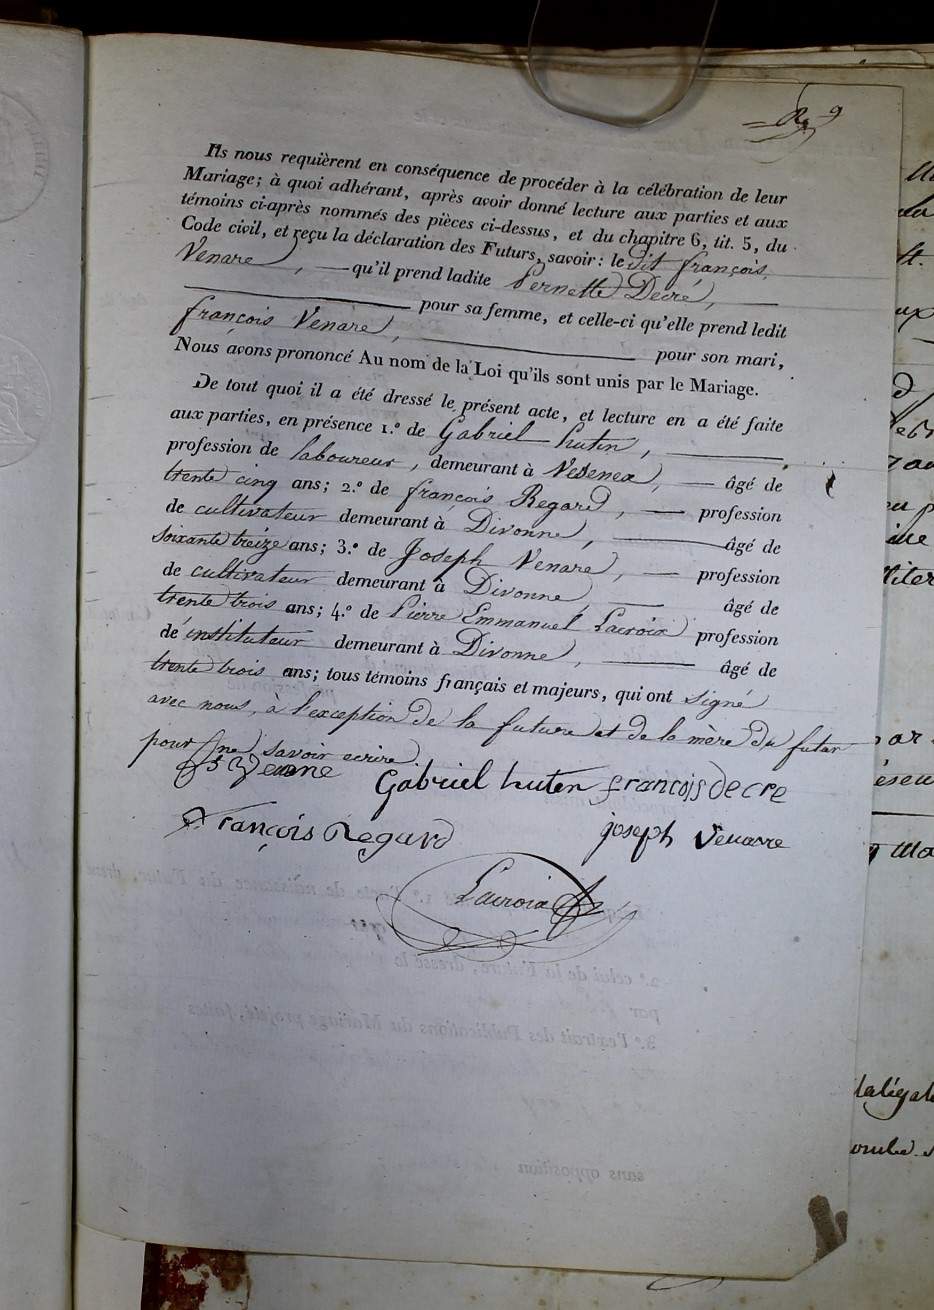 9
Ils nous requièrent en conséquence de procéder à la célébration de leur
Mariage; à quoi adhérant, après avoir donné lecture aux parties et aux
témoins ci-après nommés des pièces ci-dessus, et du chapitre 6, tit. 5, du
Code civil, et reçu la déclaration des Futurs, savoir: le dit françois
Venare, qu'il prend ladite Pernette Decré,
pour sa femme, et celle-ci qu'elle prend ledit
françois Venare, pour son mari,
Nous avons prononcé Au nom de la Loi qu'ils sont unis par le Mariage.
De tout quoi il a été dressé le présent acte, et lecture en a été faite
aux parties, en présence 1.° de Gabriel hutin,
profession de laboureur, demeurant à Vesenex, âgé de
trente cinq ans; 2.° de françois Regard, profession
de cultivateur demeurant à Divonne, âgé de
soixante treize ans; 3.° de Joseph Venare, profession
de cultivateur demeurant à Divonne âgé de
trente trois ans; 4.° de Pierre Emmanuel Lacroix profession
de instituteur demeurant à Divonne, âgé de
trente trois ans; tous témoins français et majeurs, qui ont signé
avec nous, à l'exception de la future et de la mère du futur
pour ne savoir ecrire.
Gabriel huten francois decre
François Regard joseph Venarre
Lacroix